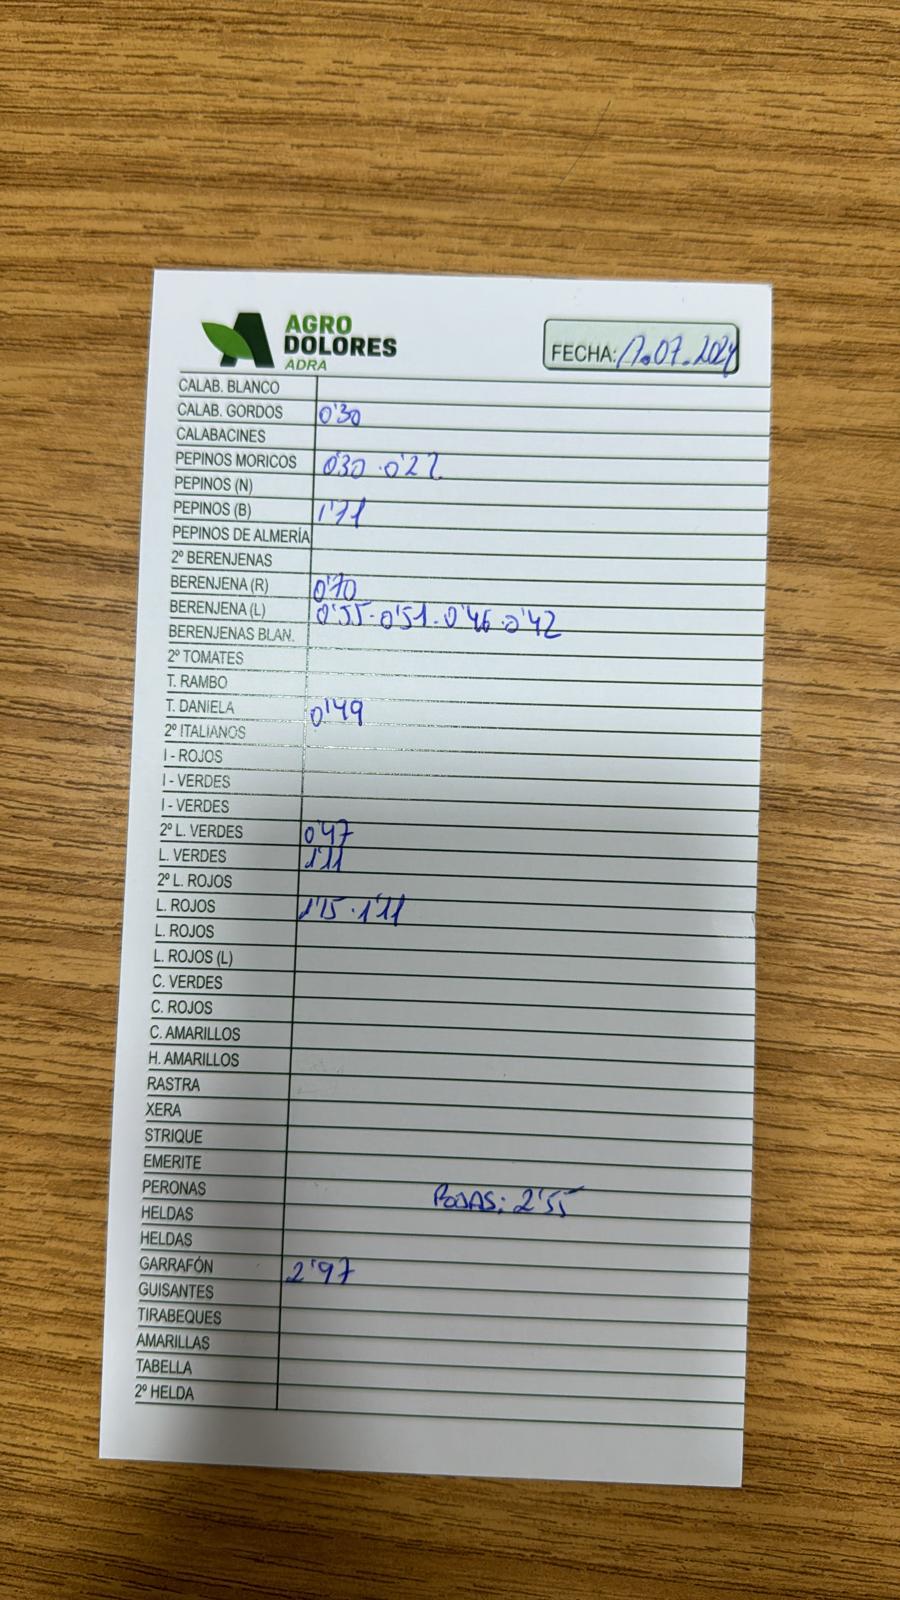 AGRO
DOLORES
ADRA
FECHA: 17.07.2024
CALAB. BLANCO
CALAB. GORDOS 0'30
CALABACINES
PEPINOS MORICOS 0'30 · 0'22
PEPINOS (N)
PEPINOS (B) 1'71
PEPINOS DE ALMERÍA
2º BERENJENAS
BERENJENA (R) 0'70
BERENJENA (L) 0'55 · 0'51 · 0'46 · 0'42
BERENJENAS BLAN.
2º TOMATES
T. RAMBO
T. DANIELA 0'49
2º ITALIANOS
I - ROJOS
I - VERDES
I - VERDES
2º L. VERDES 0'47
L. VERDES 1'11
2º L. ROJOS
L. ROJOS 1'15 · 1'11
L. ROJOS
L. ROJOS (L)
C. VERDES
C. ROJOS
C. AMARILLOS
H. AMARILLOS
RASTRA
XERA
STRIQUE
EMERITE
PERONAS ROJAS: 2'55
HELDAS
HELDAS
GARRAFÓN 2'97
GUISANTES
TIRABEQUES
AMARILLAS
TABELLA
2º HELDA